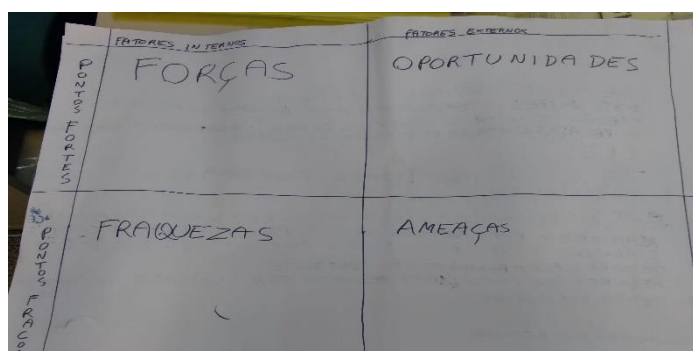 FATORES INTERNOS
FATORES EXTERNOS
PONTOS FORTES
FORÇAS
OPORTUNIDADES
PONTOS FRACO
FRAQUEZAS
AMEAÇAS